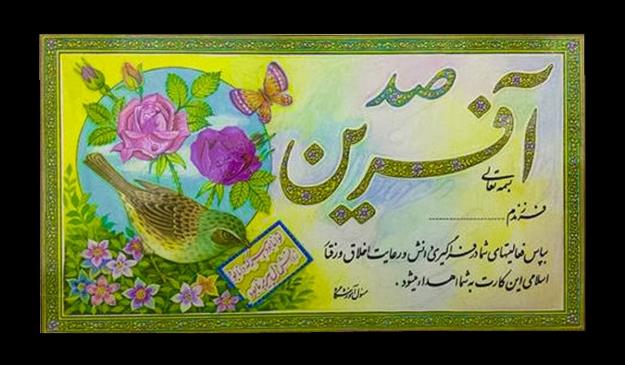 صد
آفرین
بسمه تعالی
فرزندم ------------
بپاس فعالیتهای شما در فراگیری دانش و رعایت اخلاق و رفتار
اسلامی این کارت به شما اهداء میشود .
مسئول آموزشگاه